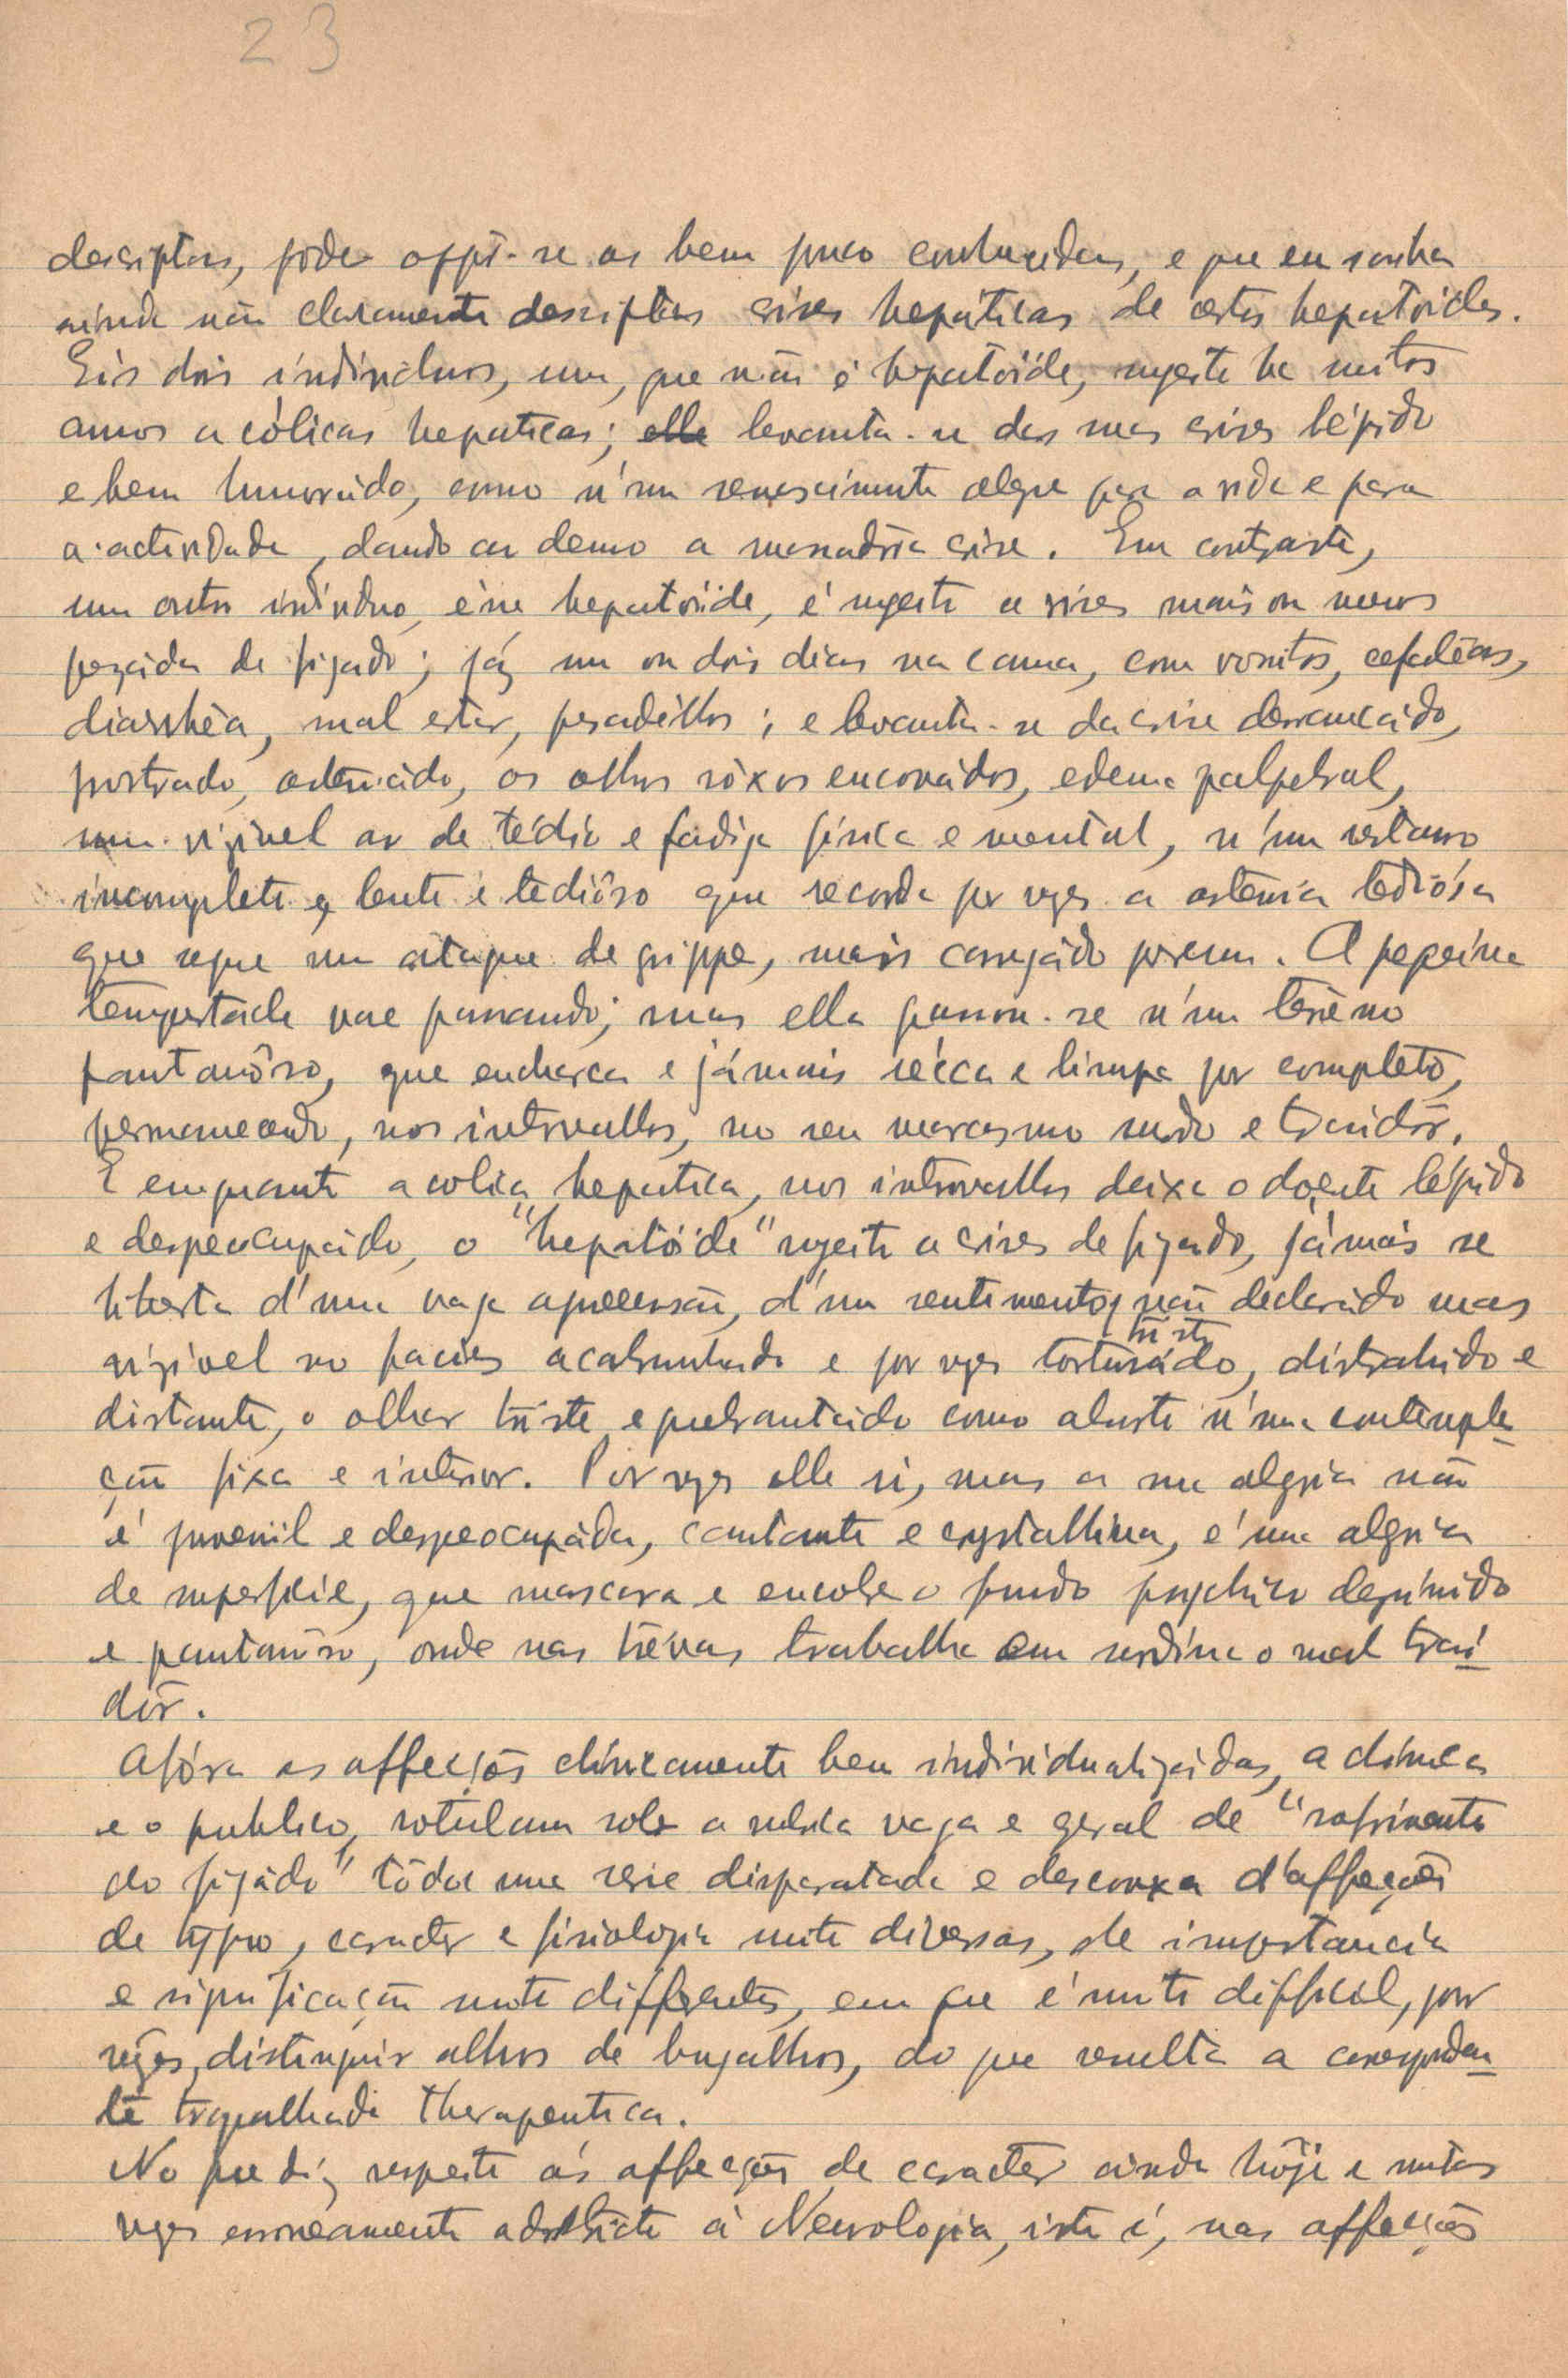 23
descriptas, póde oppôr-se as bem pouco conhecidas, e que eu saiba
ainda não claramente descriptas crises hepáticas de certos hepatóides.
Eis dois indivíduos, um, que não é hepatóide, sugeito ha muitos
annos a cólicas hepaticas; levanta-se das suas crises lépido
e bem humorádo, como n'um renascimento alegre para a vida e para
a actividade, dando ao demo a crise. Em contraste,
um outro indivíduo, ésse hepatóide, é sugeito a crises mais ou menos
pezádas de figado; jáz um ou dois dias na cama, com vomitos, cefaléas,
diarrhèa, mal estar, pesadêllos; e levanta-se da crise derrancádo,
prostrado, astenicádo, os olhos rôxos encovádos, edema palpebral,
um vizivel ar de tédio e fadiga física e mental, n'um restauro
incompleto e lento e tediôso que recorda por vezes a astenia tediósa
que segue um ataque de grippe, mais carregádo porem. A pequena
tempestade vae passando; mas ella passou-se n'um terrêno
pantanôso, que encharca e jámais sécca e limpa por completo,
permanecendo, nos intervallos, no seu marasmo surdo e traidôr.
E emquanto a colica hepatica, nos intervallos deixa o doente lépido
e despreocupádo, o "hepatóide" sugeito a crises de figado, jámais se
liberta d'uma vaga apreensão, d'um sentimento, não declarádo mas
vizivel no facies acabrunhado e por vezes torturádo, triste, distrahido e
distante, o olhar triste e quebrantádo como absorto n'uma contempla-
ção fixa e interior. Por vezes elle ri, mas a sua alegria não
é juvenil e despreocupáda, cantante e crystallina, é uma alegria
de superficie, que mascara e encobre o fundo psychico deprimido
e pantanôso, onde nas trévas trabalha em surdina o mal trai-
dôr.
Afóra as affecções clinicamente bem individualizádas, a clinica
e o publico, rotulam sob a rubrica vaga e geral de "sofrimento
do figádo" tôda uma serie disparatada e desconexa d'affecções
de typo, caracter e fisiologia muito diversas, de importancia
e significação muito differentes, em que é muito difficil, por
vêzes, distinguir alhos de bugalhos, do que resulta a corresponden-
te trapalhada therapeutica.
No que diz respeito ás affecções de caracter ainda hôje e muitas
vezes erroneamente adstricto á Neurologia, isto é, nas affecções